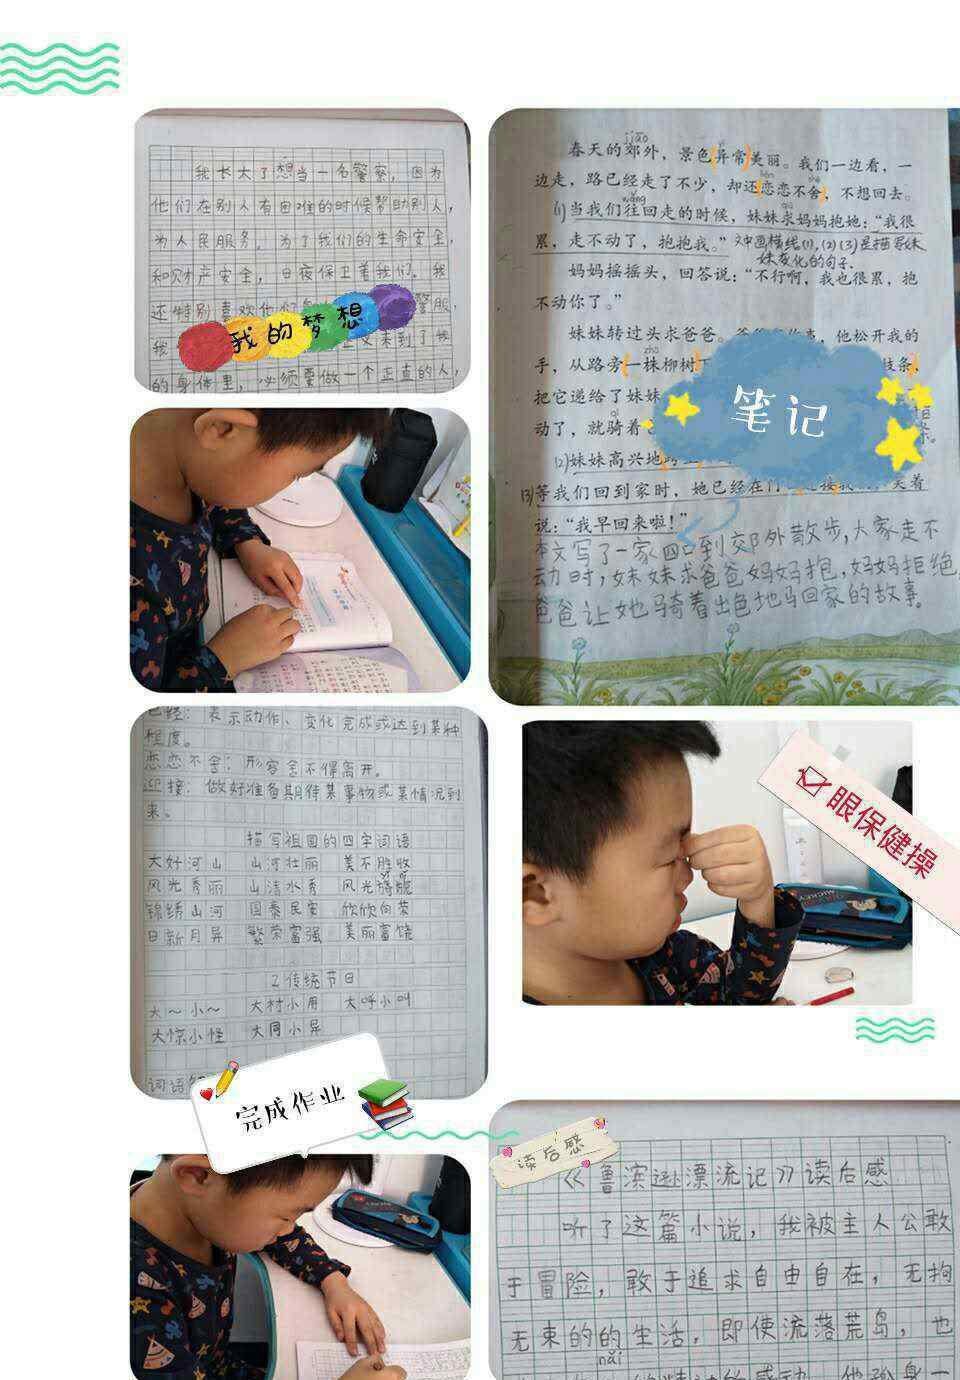 我长大了想当一名警察，因为
他们在别人有困难的时候帮助别人，
为人民服务，为了我们的生命安全，
和财产安全，日夜保卫着我们。我
还特别喜欢他们 警服，
我的梦想
我 来到了我
的身体里，必须要做一个正直的人，
jiāo
春天的郊外，景色异常美丽。我们一边看，一
边走，路已经走了不少，却还恋恋不舍，不想回去。
(1)当我们往回走的时候，妹妹求妈妈抱她：“我很
累，走不动了，抱抱我。”文中画横线(1),(2)(3)是描写妹
妹变化的句子.
妈妈摇摇头，回答说：“不行啊，我也很累，抱
不动你了。”
妹妹转过头求爸爸。 他松开我的
zhū
手，从路旁一株柳树 枝条
把它递给了妹妹
笔记
qí
动了，就骑着
(2)妹妹高兴地
(3)等我们回到家时，她已经在门 笑着
说：“我早回来啦！”
本文写了一家四口到郊外散步，大家走不
动时，妹妹求爸爸妈妈抱，妈妈拒绝，
爸爸让她骑着 马回家的故事。
已经：表示动作、变化完成或达到某种
程度。
恋恋不舍：形容舍不得离开。
迎接：做好准备期待某事物或某情况到
来。
描写祖国的四字词语
大好河山 山河壮丽 美不胜收
风光秀丽 山清水秀 风光旖旎
锦绣山河 国泰民安 欣欣向荣
日新月异 繁荣富强 美丽富饶
2传统节日
大～小～ 大材小用 大呼小叫
大惊小怪 大同小异
词语
完成作业
眼保健操
读后感
《鲁滨逊漂流记》读后感
听了这篇小说，我被主人公敢
于冒险，敢于追求自由自在，无拘
无束的的生活，即使流落荒岛，也
nǎi
的精神所感动。他孤身一